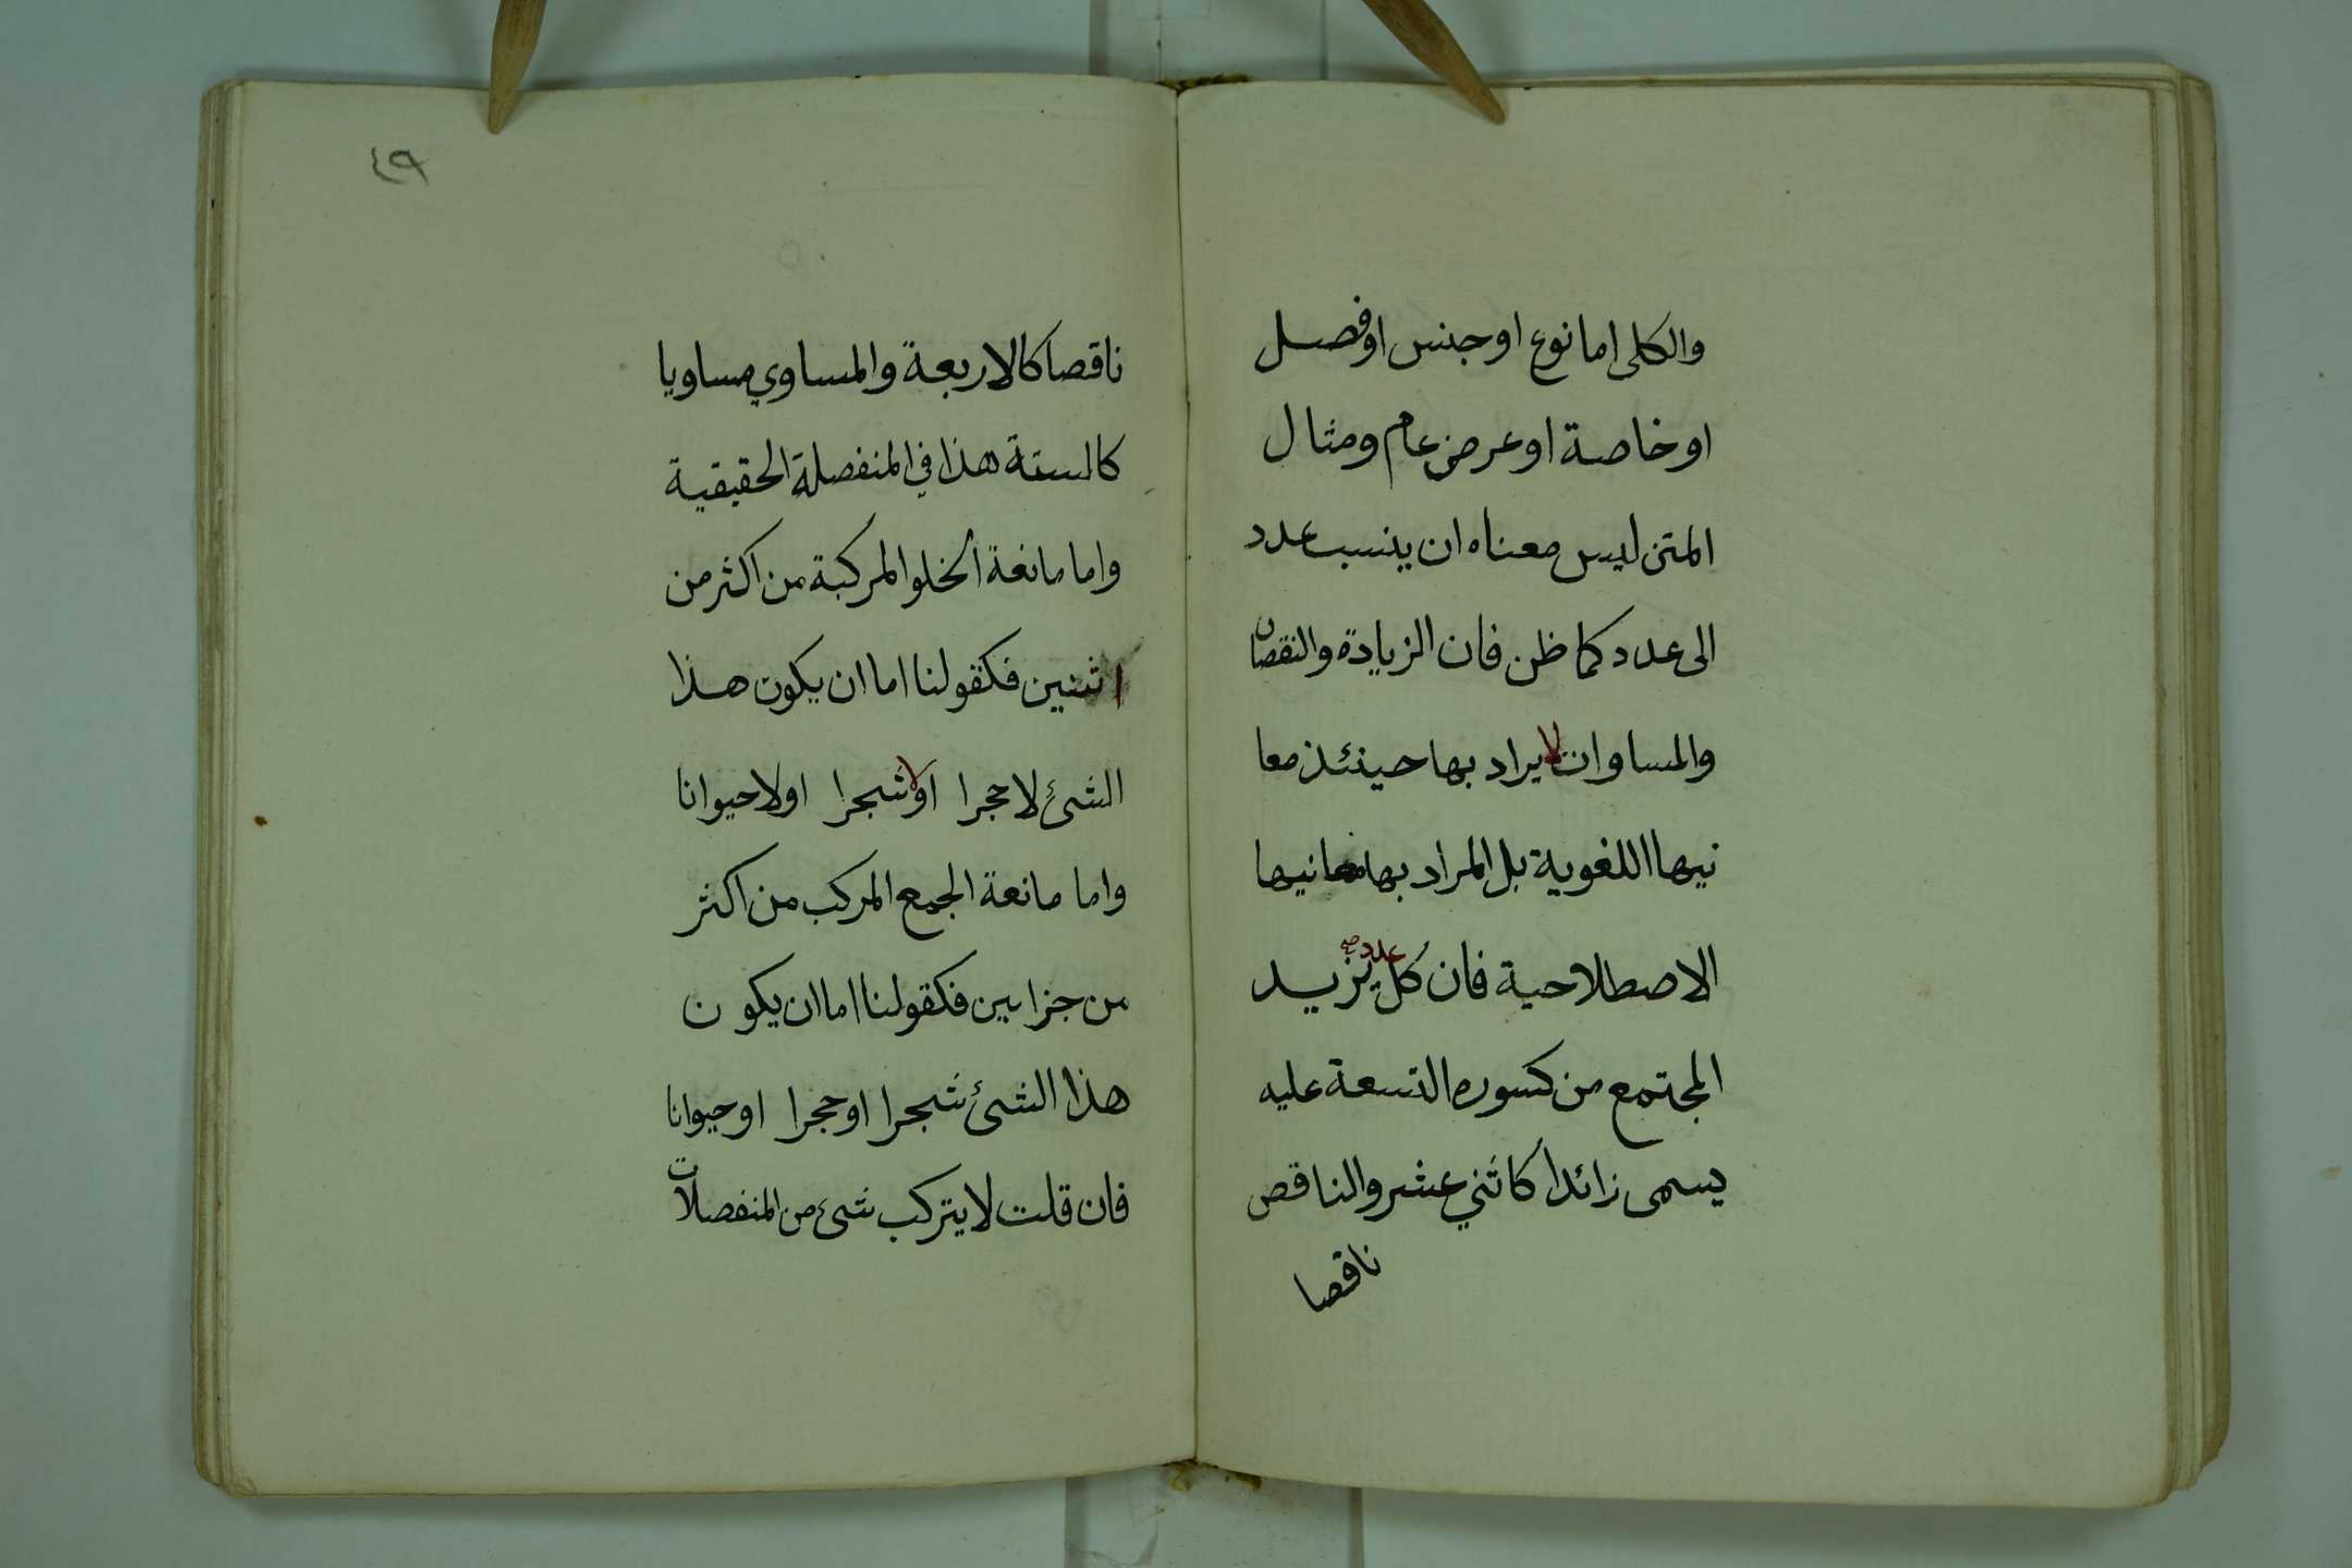 والكلى اما نوع او جنس او فصل
او خاصة او عرض عام ومثال
المتن ليس معناه ان ينسب عدد
الى عدد كما ظن فان الزيادة والنقصان
والمساوات لا يراد بها حينئذ معا
نيها اللغوية بل المراد بها معانيها
الاصطلاحية فان كل عدد صح يزيد
المجتمع من كسوره التسعة عليه
يسمى زائدا كاثني عشر والناقص
ناقصا
٤٩
ناقصا كالاربعة والمساوي مساويا
كالستة هذا في المنفصلة الحقيقية
واما مانعة الخلو المركبة من اكثر من
اثنين فكقولنا اما ان يكون هذا
الشئ لا حجرا او لا شجرا او لا حيوانا
واما مانعة الجمع المركب من اكثر
من جزاين فكقولنا اما ان يكون
هذا الشئ شجرا او حجرا او حيوانا
فان قلت لا يتركب شئ من المنفصلات